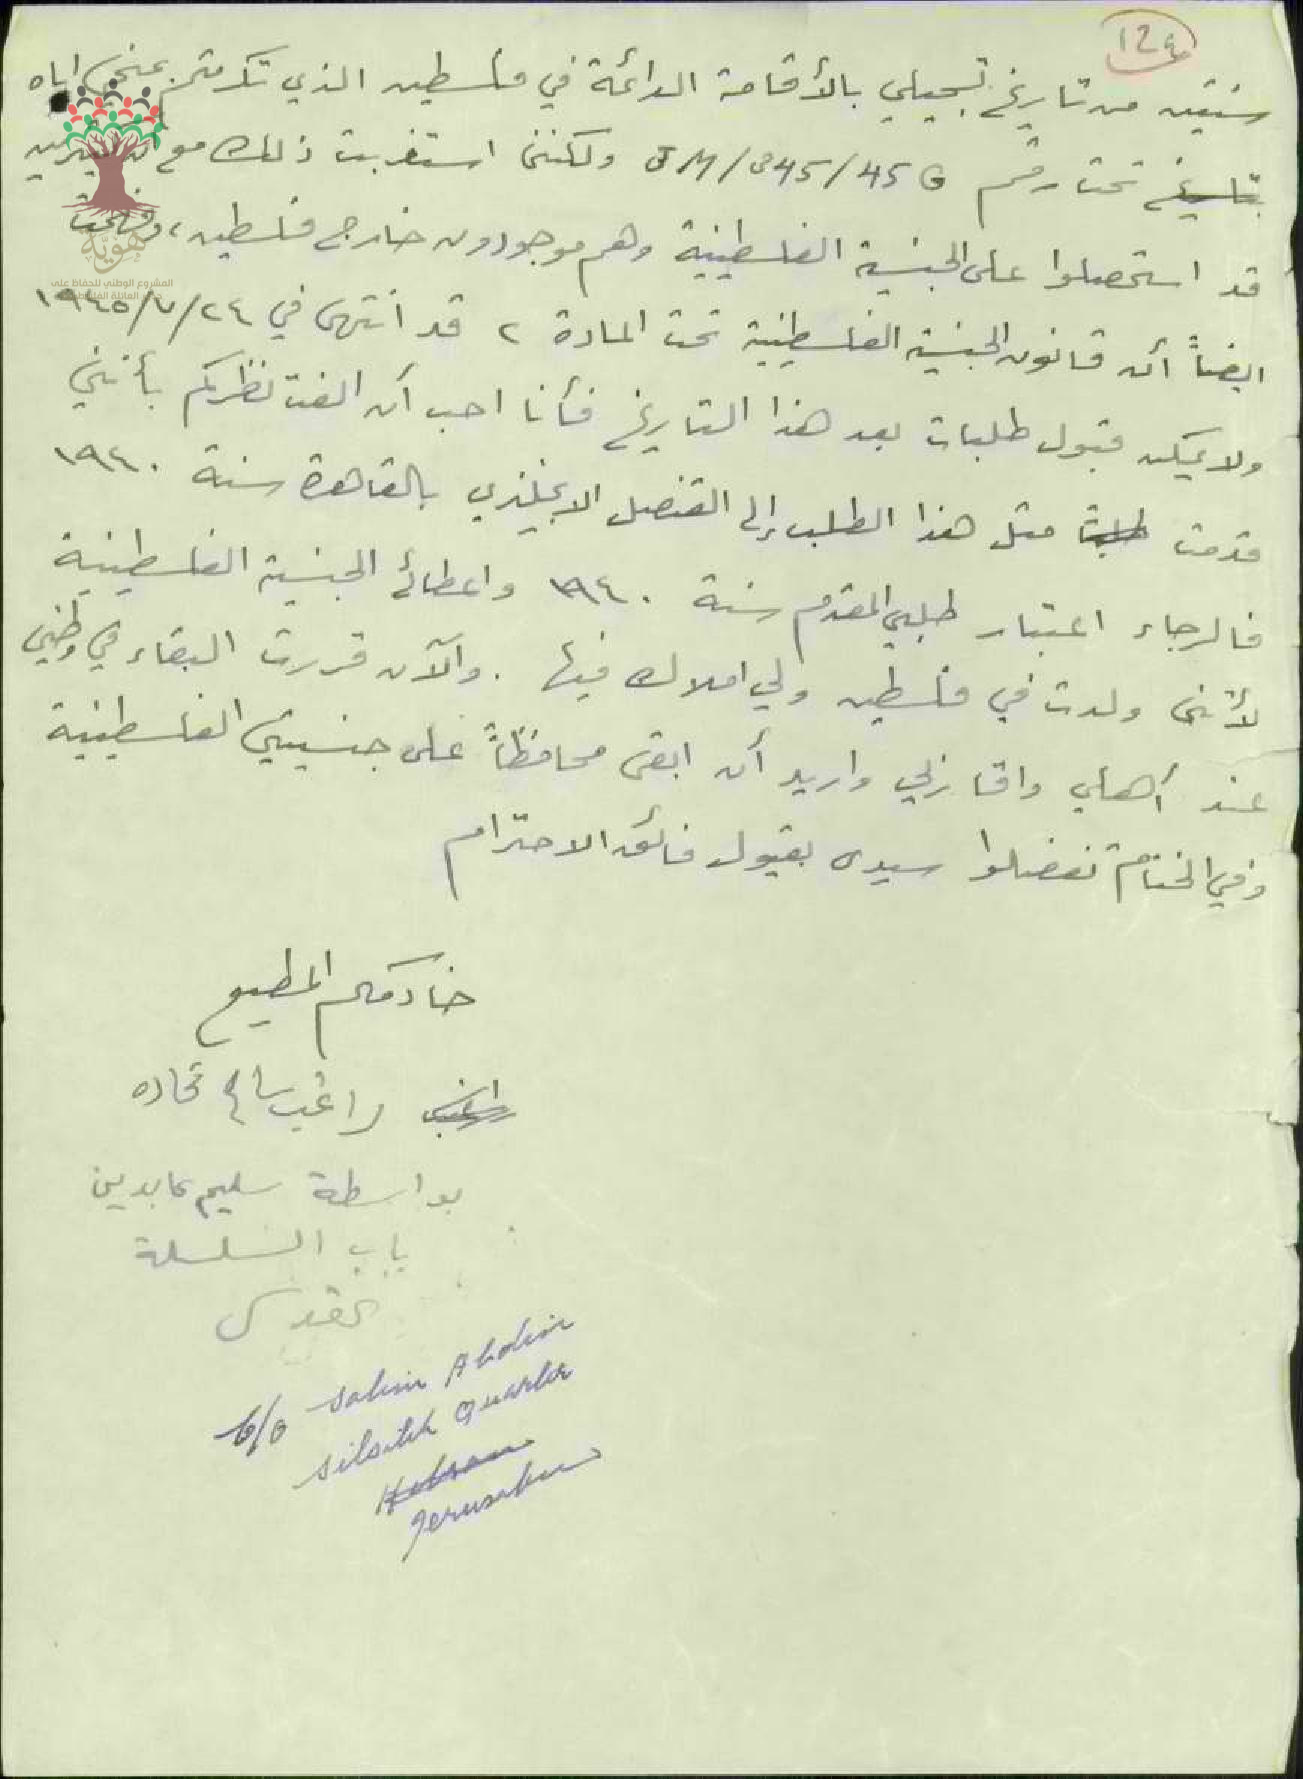 124
سنتين من تاريخ تسجيلي بالأقامة الدائمة في فلسطين الذي تكرمتم بمنحي اياه
بتاريخ تحت رقم JM/345/45G ولكنني استغربت ذلك مع ان كثيرين
قد استحصلوا على الجنسية الفلسطينية وهم موجودون خارج فلسطين، وفهمت
ايضاً أن قانون الجنسية الفلسطينية تحت المادة ٢ قد انتهى في ٢٤/٧/١٩٤٥
ولا يمكن قبول طلبات بعد هذا التاريخ فأنا احب أن الفت نظركم بأنني
قدمت طلباً مثل هذا الطلب إلى القنصل الانجليزي بالقاهرة سنة ١٩٤٠
فالرجاء اعتبار طلبي المقدم سنة ١٩٤٠ واعطائي الجنسية الفلسطينية
لأنني ولدت في فلسطين ولي املاك فيها . والآن قررت البقاء في وطني
عند أهلي واقاربي واريد أن ابقى محافظاً على جنسيتي الفلسطينية
وفي الختام تفضلوا سيدى بقبول فائق الاحترام
خادمكم المطيع
راغب
بواسطة سليم عابدين
باب السلسلة
القدس
c/o Salim Abdin
Silsileh Quarter
Hebron
Jerusalem
هويّة
المشروع الوطني للحفاظ على